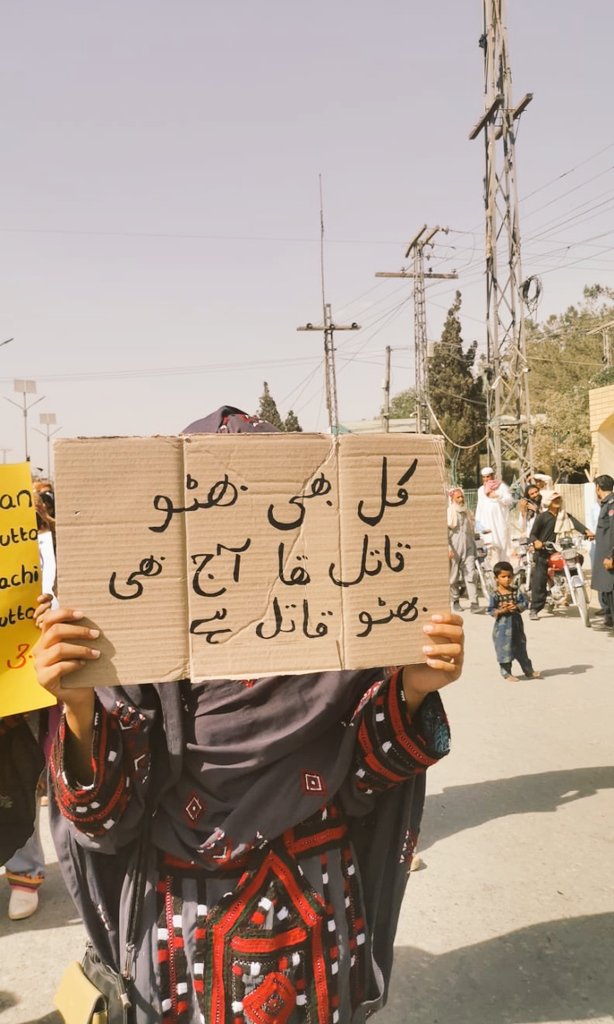 کل بھی بھٹو
قاتل تھا آج بھی
بھٹو قاتل ہے
an
utto
achi
utto
3.